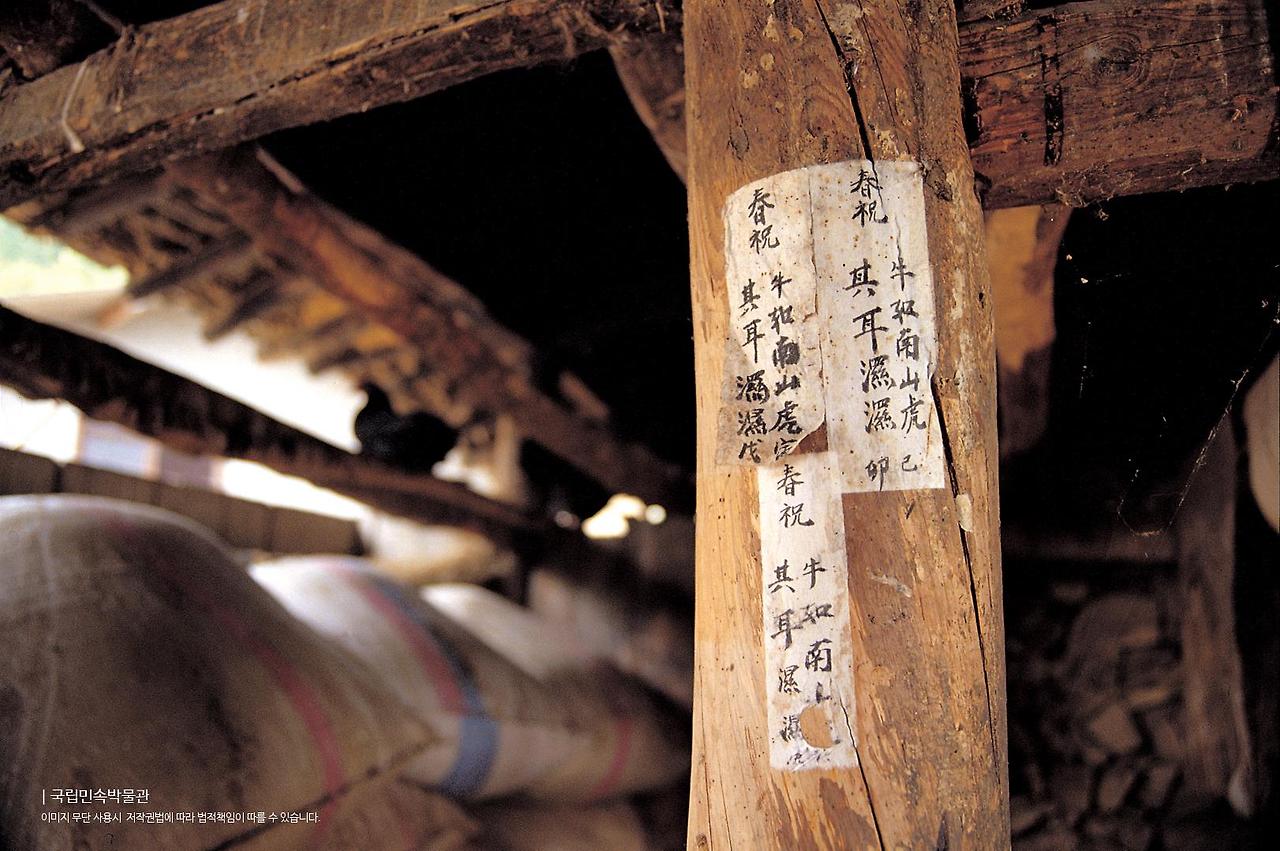 春祝
牛如南山虎 己
其耳濕濕 卯
春祝
牛如南山虎寅
其耳濕濕戊
春祝
牛如南山
其耳濕濕
국립민속박물관
이미지 무단 사용시 저작권법에 따라 법적책임이 따를 수 있습니다.